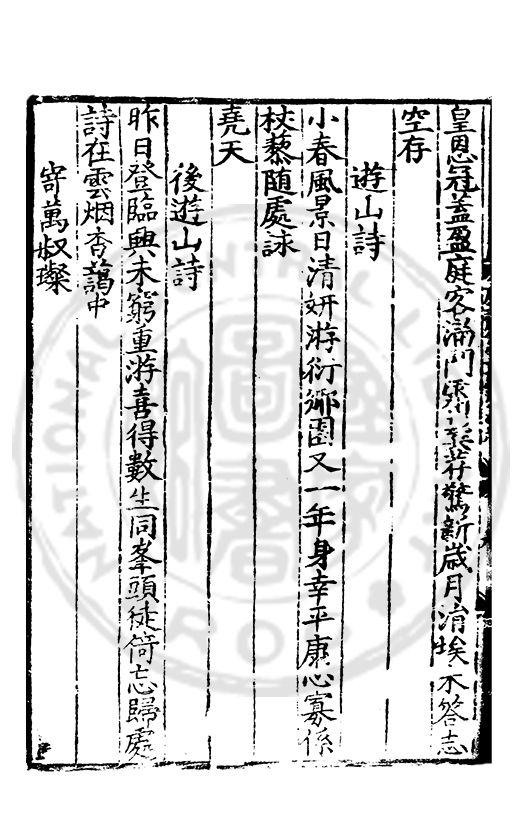 皇恩冠蓋盈庭客滿門 驚新歲月涓埃未答志
空存
遊山詩
小春風景日清妍游衍鄉園又一年身幸平康心寡係
杖藜随處詠
堯天
後遊山詩
昨日登臨興未窮重游喜得數生同峯頭徒倚忘歸處
詩在雲烟杳藹中
寄萬叔璨